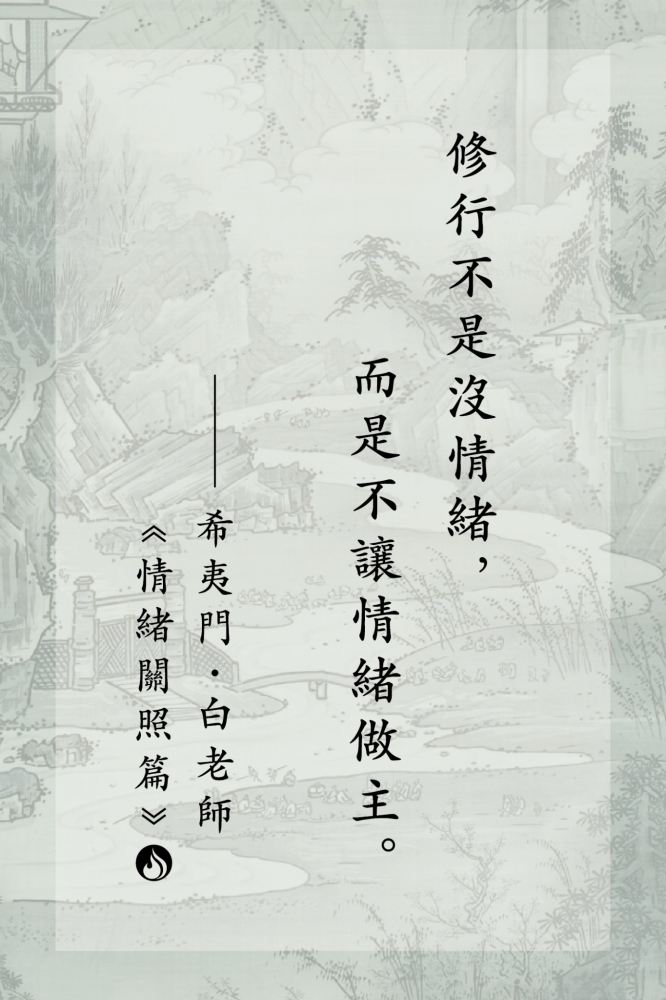 修行不是沒情緒，
而是不讓情緒做主。
——希夷門·白老師
《情緒關照篇》